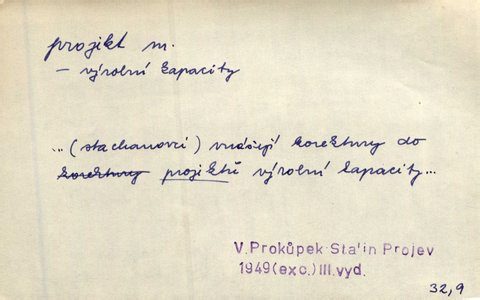 projekt m.
– výrobní kapacity
...(stachanovci) vnášejí korektury do
korektury projektů výrobní kapacity...
V.Prokůpek Stalin Projev
1949(exc.)III.vyd.
32,9